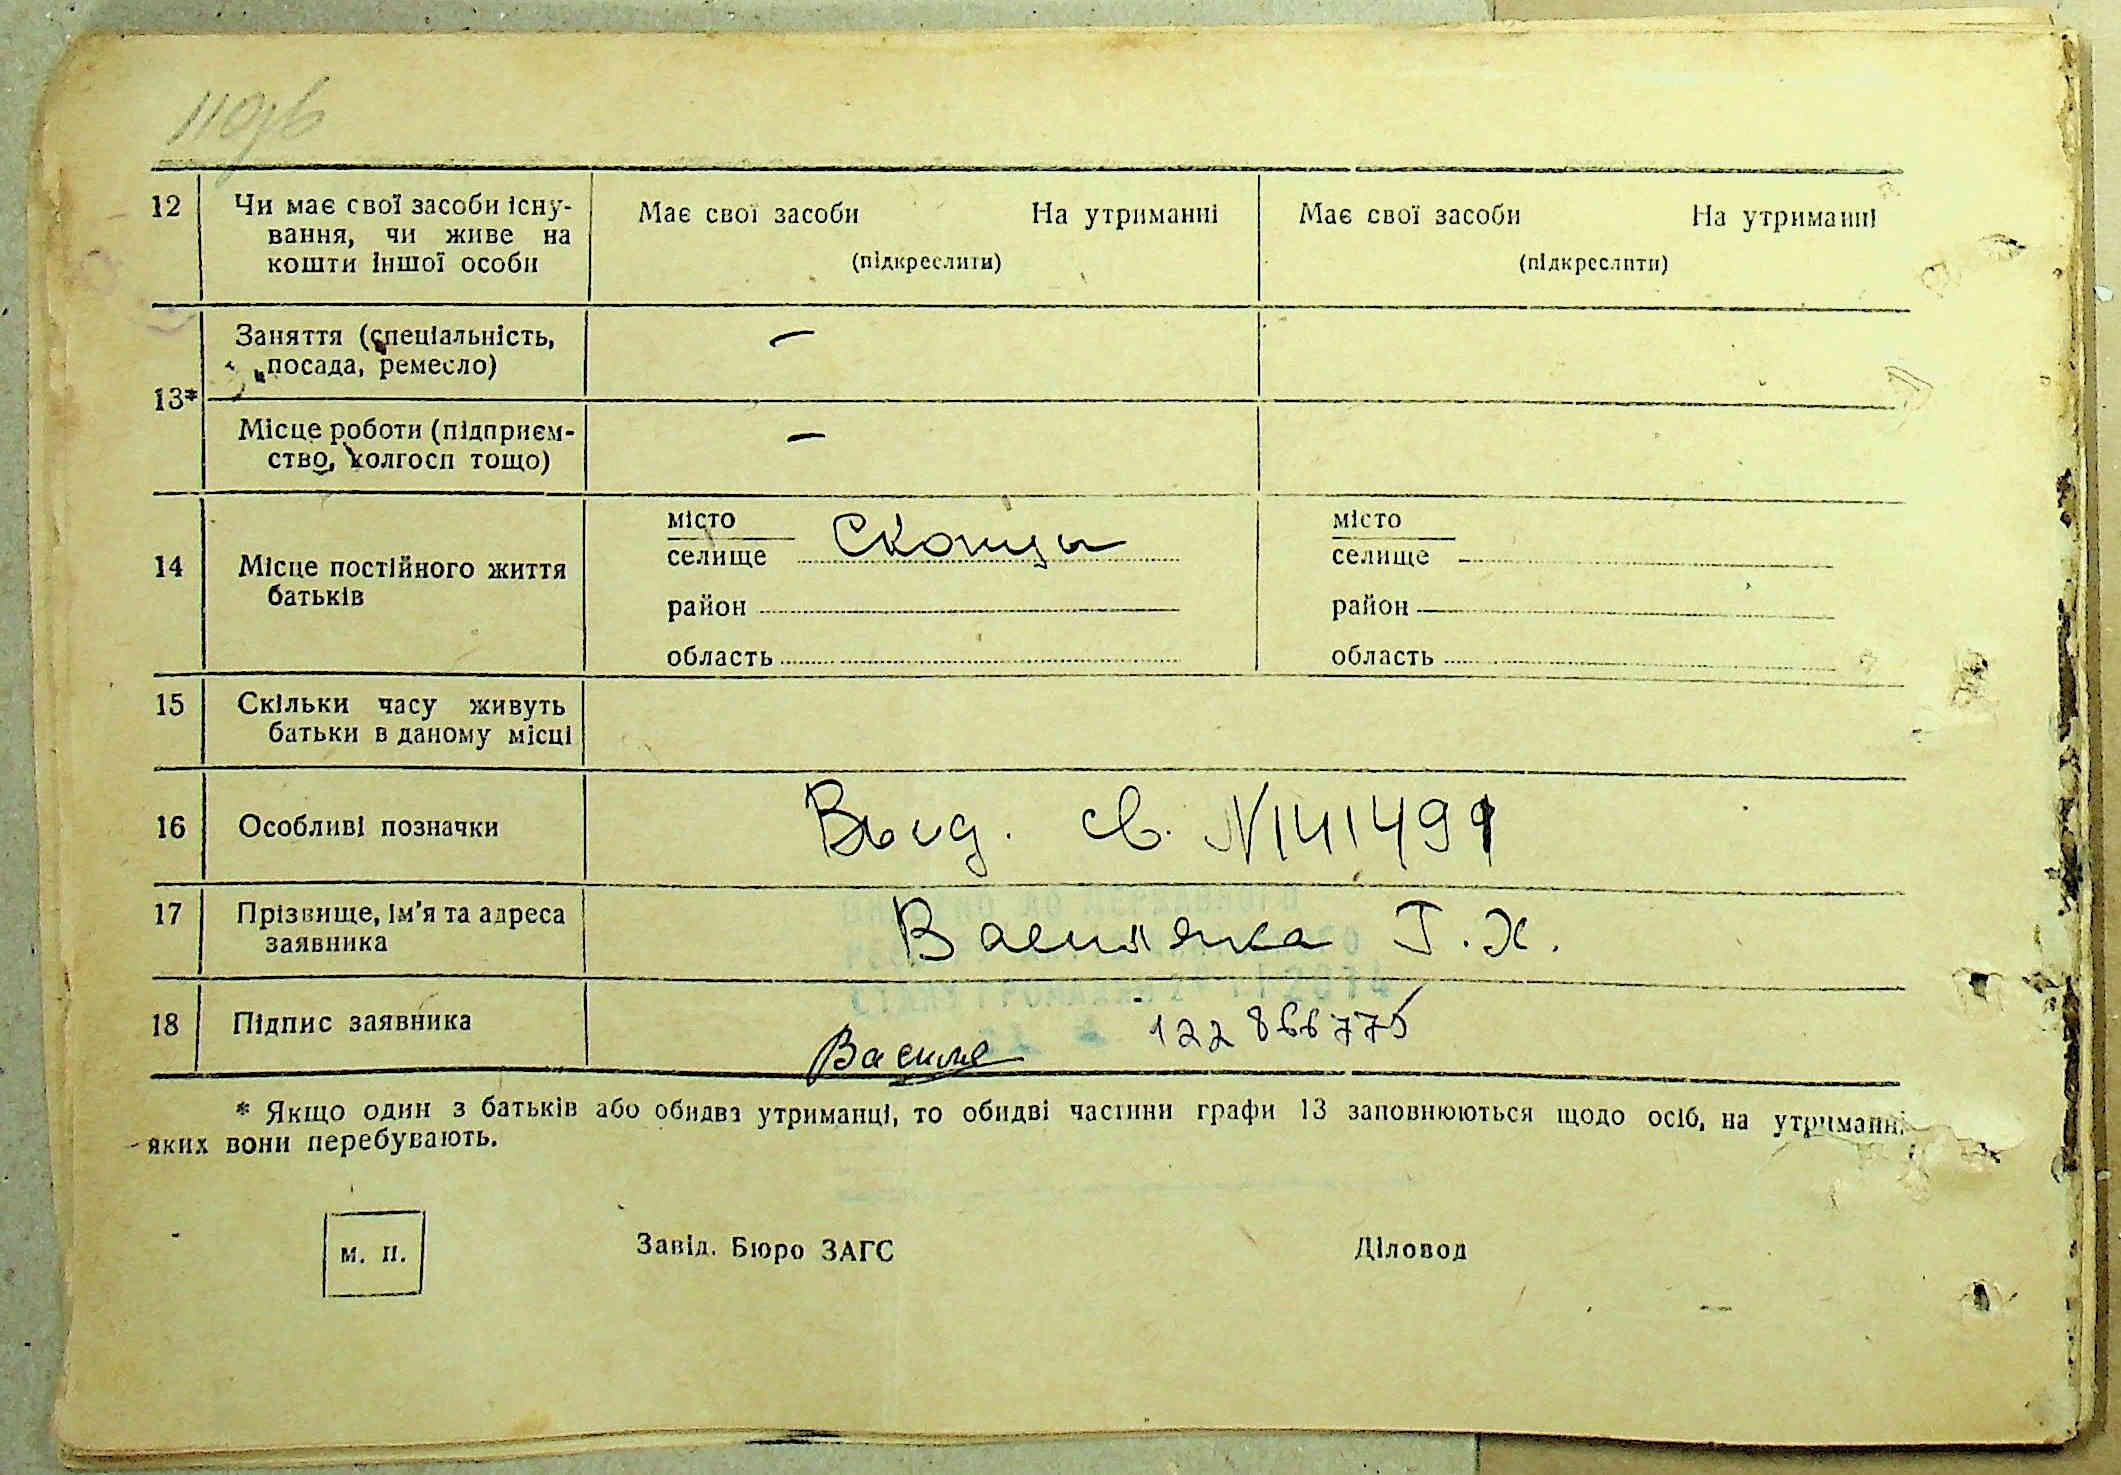 12
Чи має свої засоби існу-
вання, чи живе на
кошти іншої особи
Має свої засоби На утриманні
(підкреслити)
Має свої засоби На утриманні
(підкреслити)
13*
Заняття (спеціальність,
посада, ремесло)
—
Місце роботи (підприєм-
ство, колгосп тощо)
—
14
Місце постійного життя
батьків
місто
селище
район
область
місто
селище
район
область
15
Скільки часу живуть
батьки в даному місці
16
Особливі позначки
Выд. св. N141499
17
Прізвище, ім'я та адреса
заявника
Василянка Г. Х.
18
Підпис заявника
Василя
122866775
* Якщо один з батьків або обидва утриманці, то обидві частини графи 13 заповнюються щодо осіб, на утриманні
яких вони перебувають.
м. п.
Завід. Бюро ЗАГС
Діловод